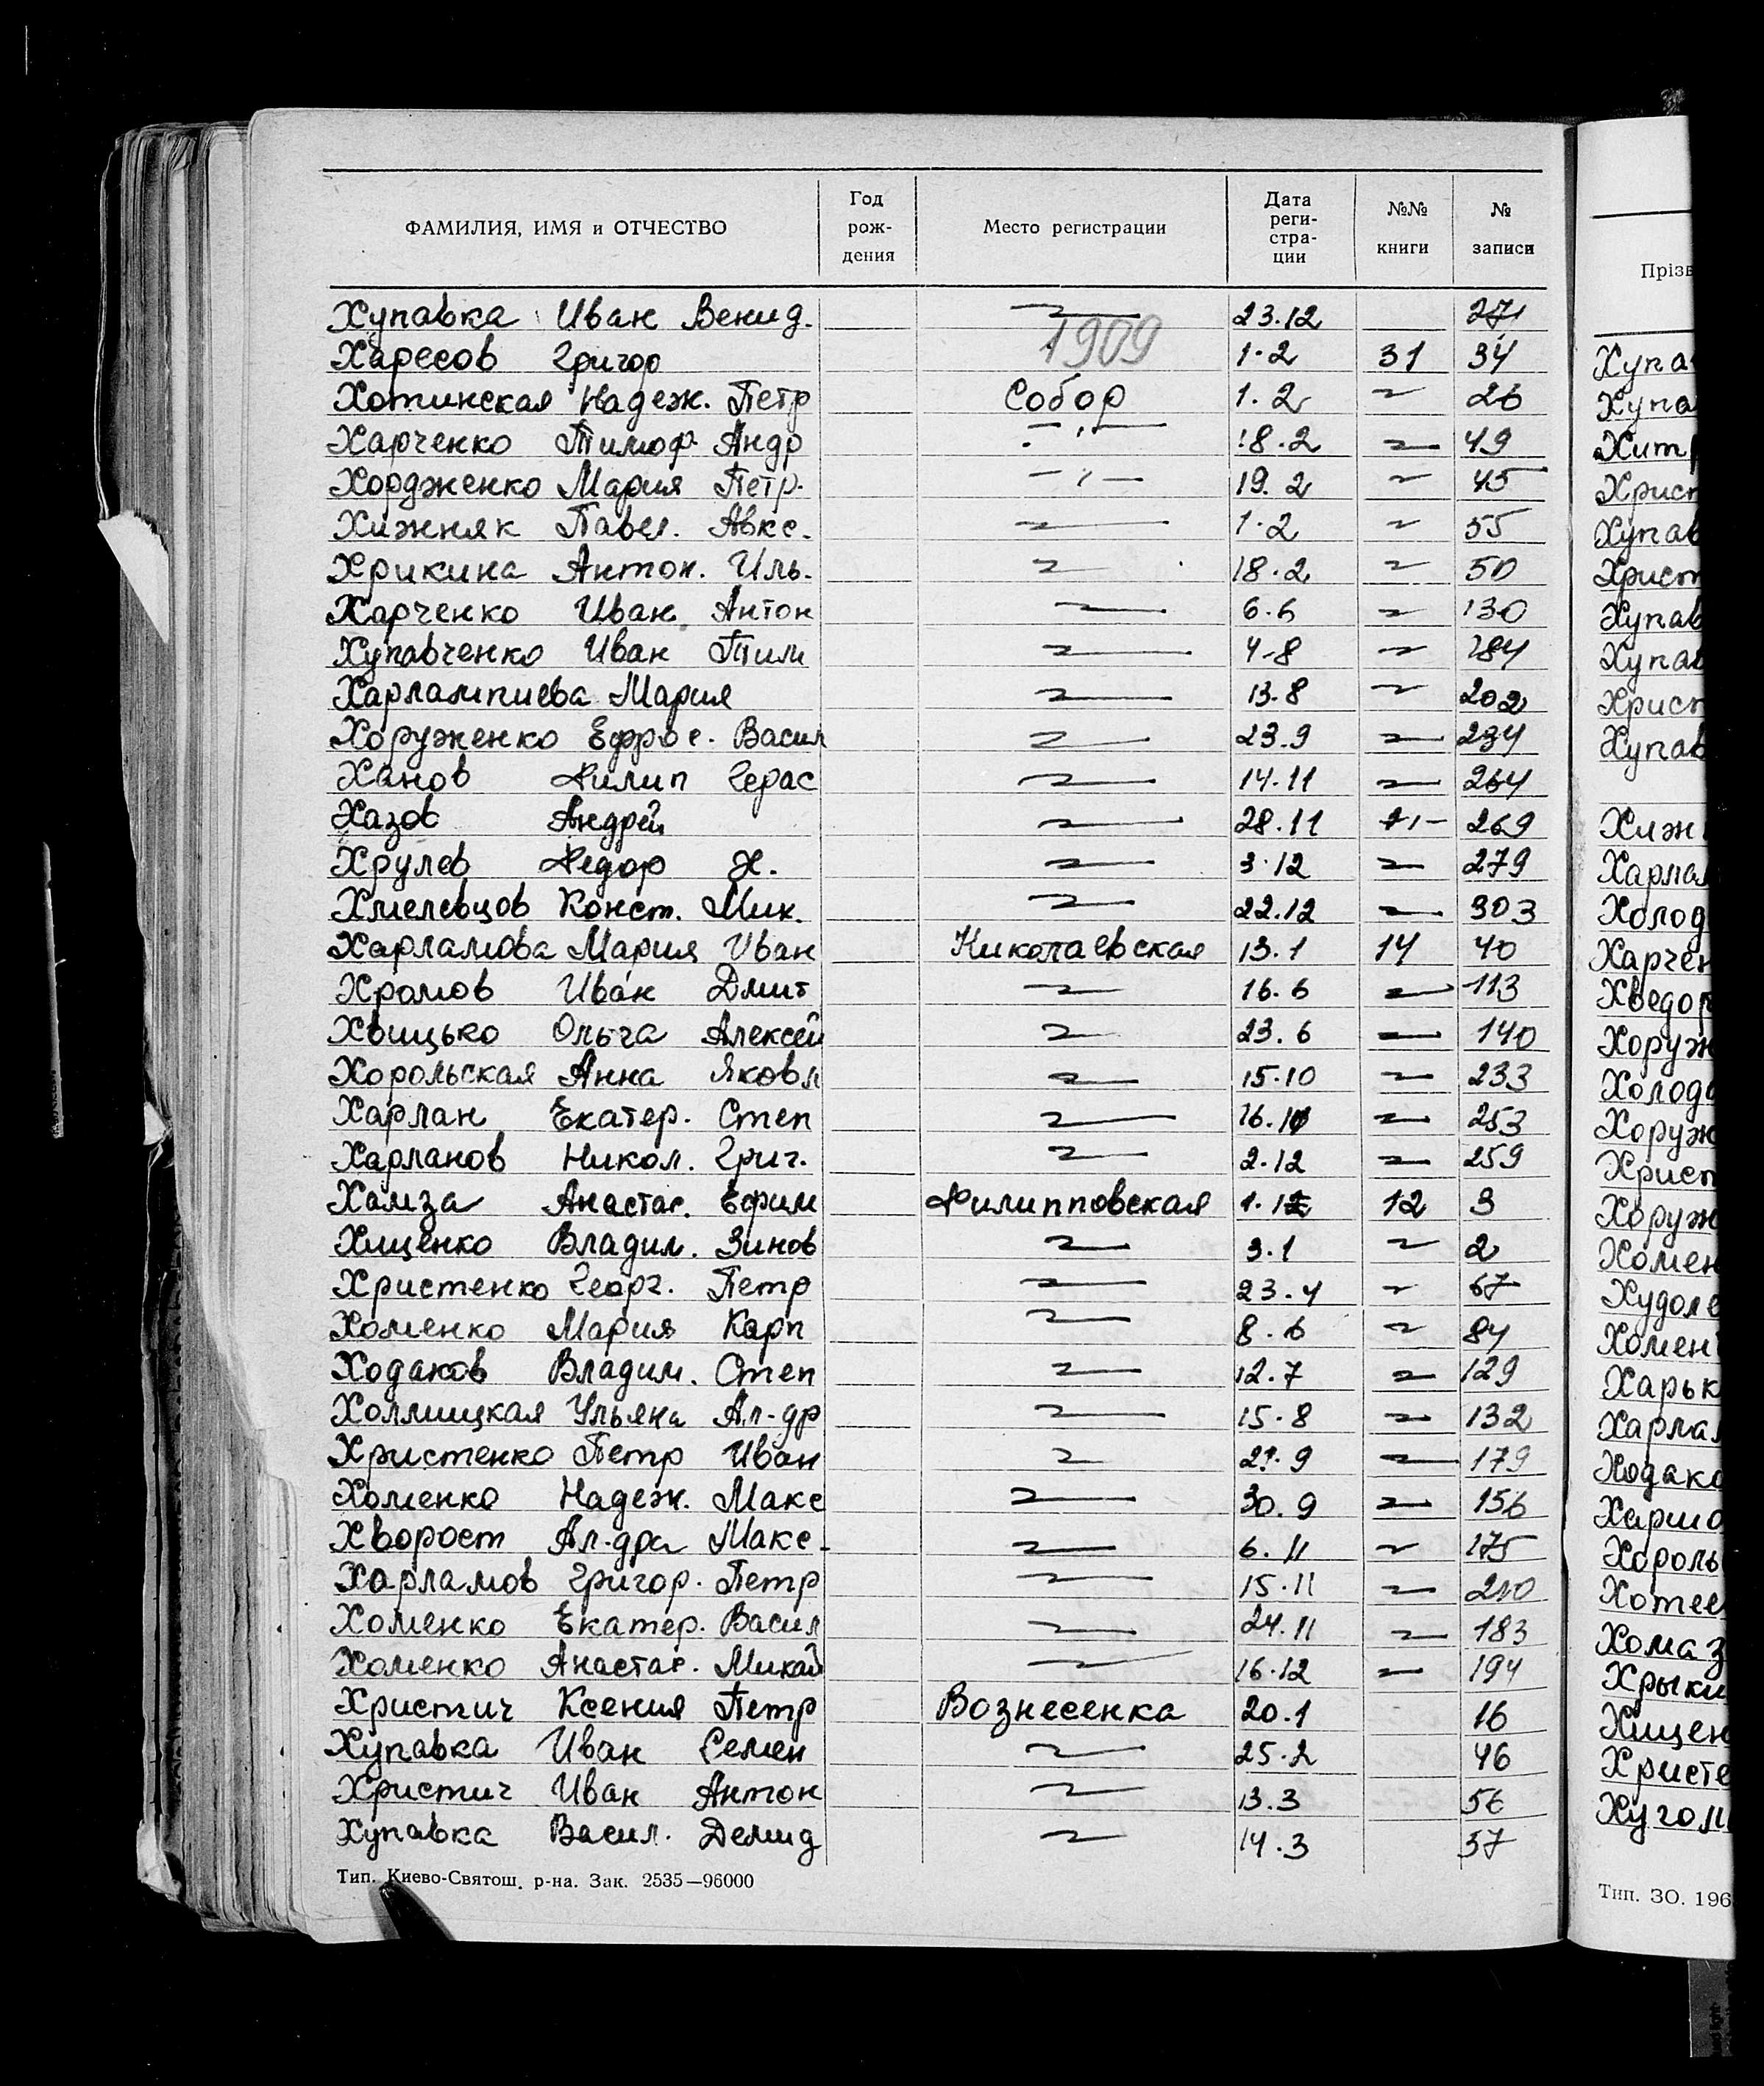 ФАМИЛИЯ, ИМЯ и ОТЧЕСТВО Год рож- дения Место регистрации Дата реги- стра- ции №№ книги № записи
Хупавка Иван Венид. 23.12 271
1909
Харесов Григор 1.2 31 34
Хотинская Надеж. Петр Собор 1.2 26
Харченко Тимоф Андр 18.2 49
Хордженко Мария Петр. 19.2 45
Хижняк Павел. Авкс. 1.2 55
Хрикина Антон. Иль. 18.2 50
Харченко Иван Антон 6.6 130
Хупавченко Иван Тим 4-8 184
Харлампиева Мария 13.8 202
Хоруженко Ефрос. Васил 23.9 234
Ханов Филип Герас 14.11 264
Хазов Андрей 28.11 269
Хрулев Федор Н. 3.12 279
Хмелевцов Конст. Мик. 22.12 303
Харламова Мария Иван Николаевская 13.1 14 40
Хромов Иван Дмит 16.6 113
Хвицько Ольга Алексей 23.6 140
Хорольская Анна Яковл 15.10 233
Харлан Екатер. Степ 16.10 253
Харланов Никол. Григ. 2.12 259
Хамза Анастас. Ефим Филипповская 1.12 12 3
Хищенко Владим. Зинов 3.1 2
Христенко Георг. Петр 23.4 67
Хоменко Мария Карп 8.6 84
Ходаков Владим. Степ 12.7 129
Холмицкая Ульяна Ал-др 15.8 132
Христенко Петр Иван 29.9 179
Хоменко Надеж. Макс 30.9 156
Хворост Ал-дра Макс. 6.11 175
Харламов Григор. Петр 15.11 210
Хоменко Екатер. Васил 24.11 183
Хоменко Анастас. Михай 16.12 194
Христич Ксения Петр Вознесенка 20.1 16
Хупавка Иван Семен 25.2 46
Христич Иван Антон 13.3 56
Хупавка Васил. Демид 14.3 57
Тип. Киево-Святош. р-на. Зак. 2535—96000
Прізв
Хупа
Хупа
Хитр
Христ
Хупав
Христ
Хупав
Хупав
Христ
Хупав
Хижн
Харлам
Холод
Харчен
Хведор
Хоруж
Холодо
Хоруж
Христ
Хоруж
Хомен
Худоле
Хомен
Харьк
Харлам
Ходако
Хороль
Хомаз
Хрыки
Хищен
Христе
Тип. ЗО. 196